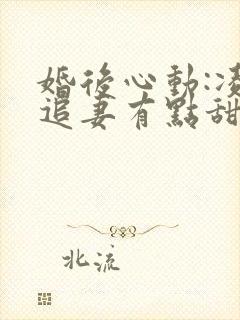 婚後心動:凌
追妻有點甜
北流